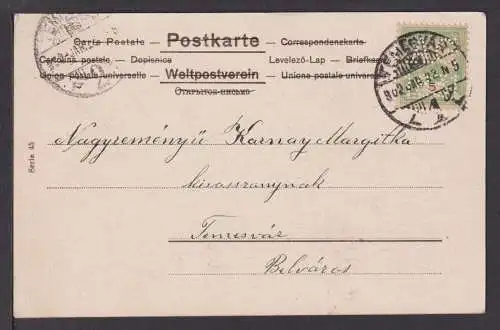 Carte Postale — Postkarte — Correspondenzkarte
Cartolina postale — Dopisnice Levelező-Lap — Briefkaart
Union postale universelle — Weltpostverein — Unione postale universale
Открытое письмо
Serie 45
Nagyreményű Karnay Margitka
kisasszonynak
Temesvár
Belváros